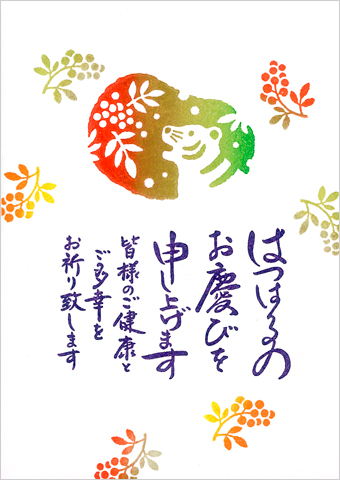 はつはるの
お慶びを
申し上げます
皆様のご健康と
ご多幸を
お祈り致します